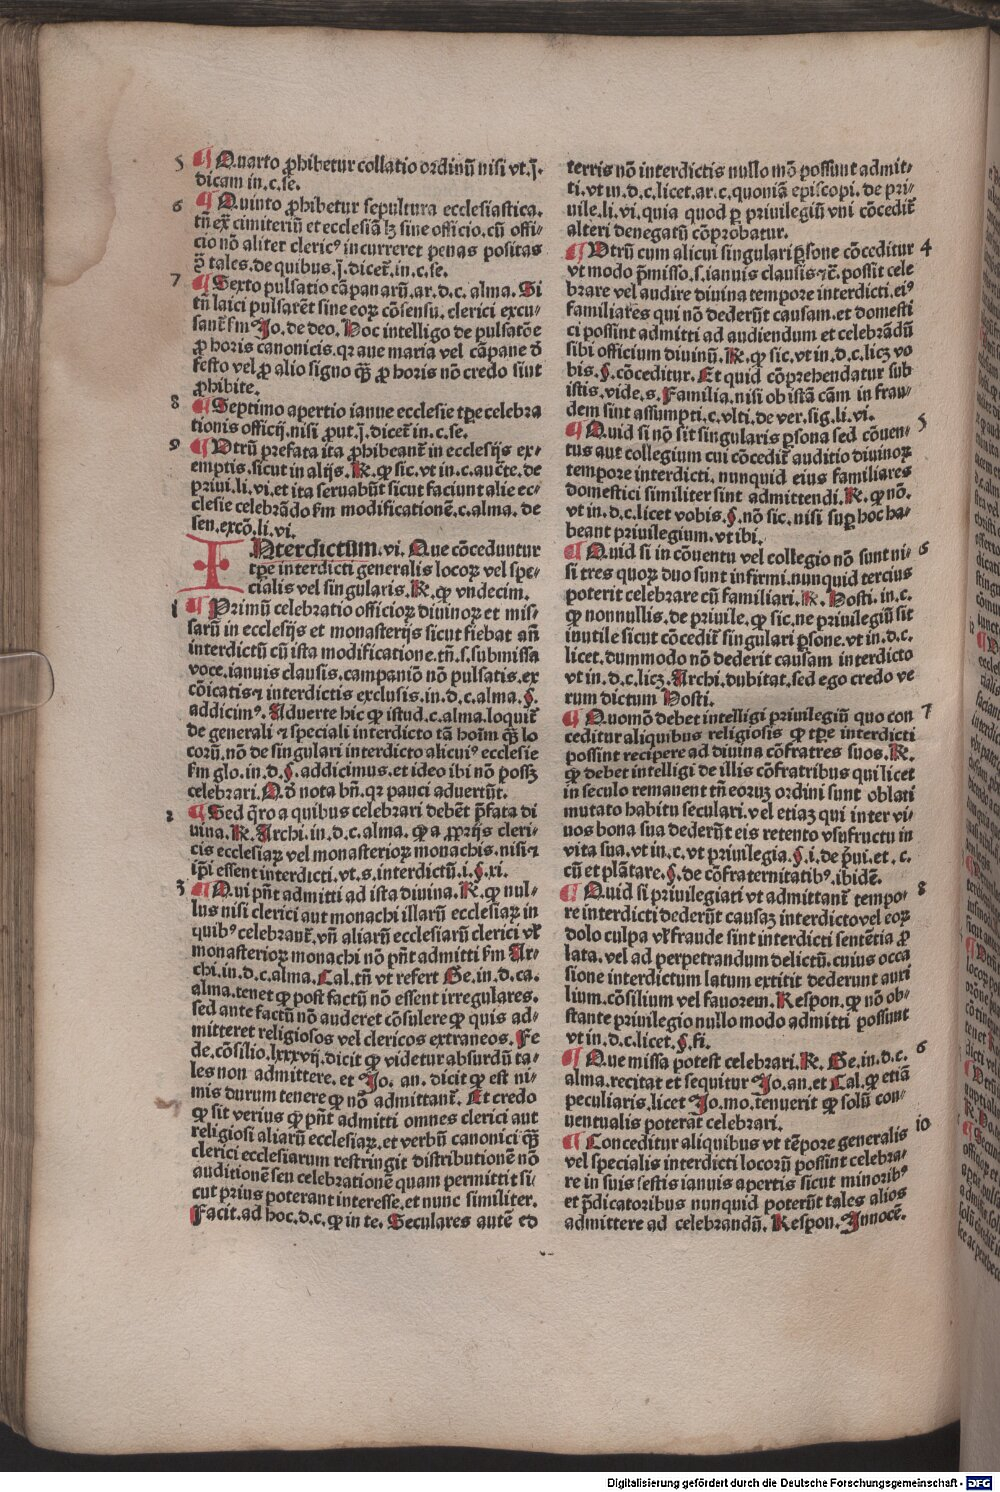 5 ¶ Quarto ꝓhibetur collatio ordinū nisi vt.j.
dicam in.c.se.
6 ¶ Quinto ꝓhibetur sepultura ecclesiastica.
tñ ex̄ cimiteriū et ecclesiā lꝫ sine officio.cū offi⸗
cio nō aliter clericꝰ incurreret penas positas
ꝓ tales.de quibus.j.dicet̄.in.c.se.
7 ¶ Sexto pulsatio cāpanarū.ar.d.c.alma.Si
tñ laici pulsarēt sine eoꝝ cōsensu.clerici excu⸗
sant̄ ẜm Jo.de deo.Hoc intelligo de pulsatōe
ꝓ horis canonicis.qꝛ aue maria vel cāpane ꝺ̄
festo vel ꝓ alio signo qꝫ̄ ꝓ horis nō credo sint
ꝓhibite.
8 ¶ Septimo apertio ianue ecclesie tꝑe celebra
tionis officij.nisi ꝓut.j.dicet̄ in.c.se.
9 ¶ Utrū prefata ita ꝓhibeant̄ in ecclesijs ex⸗
emptis.sicut in alijs.R̄.ꝙ sic.vt in.c.auc̄te.de
priui.li.vi.et ita seruabūt sicut faciunt alie ec⸗
clesie celebrādo ẜm modificationē.c.alma.de
sen.excō.li.vi.
INterdictum.vi.Que cōceduntur
tꝑe interdicti generalis locoꝝ vel spe⸗
cialis vel singularis.R̄.ꝙ vndecim.
1 ¶ Primū celebratio officioꝝ diuinoꝝ et mis⸗
sarū in ecclesijs et monasterijs sicut fiebat añ
interdictū cū ista modificatione.tñ.s.submissa
voce.ianuis clausis.campanis nō pulsatis.ex
cōicatis ⁊ interdictis exclusis.in.d.c.alma.§.
addicimꝰ.Aduerte hic ꝙ istud.c.alma.loquit̄
de generali ⁊ speciali interdicto tā hoīm qꝫ̄ lo
corū.nō de singulari interdicto alicuiꝰ ecclesie
ẜm glo.in.d.§.addicimus.et ideo ibi nō possꝫ
celebrari.Qd̄ nota bn̄.qꝛ pauci aduertūt.
2 ¶ Sed q̄ro a quibus celebrari debēt p̄fata di
uina.R̄.Archi.in.d.c.alma.ꝙ a ꝓprijs cleri⸗
cis ecclesiaꝝ vel monasterioꝝ monachis.nisi ⁊
ip̄i essent interdicti.vt.s.interdictū.i.§.xi.
3 ¶ Qui pn̄t admitti ad ista diuina.R̄.ꝙ nul⸗
lus nisi clerici aut monachi illarū ecclesiaꝝ in
quibꝰ celebrant̄.vn̄ aliarū ecclesiarū clerici vł
monasterioꝝ monachi nō pn̄t admitti ẜm Ar⸗
chi.in.d.c.alma.Cal.tñ vt refert Ge.in.d.ca.
alma.tenet ꝙ post factū nō essent irregulares.
sed ante factū nō auderet cōsulere ꝙ quis ad⸗
mitteret religiosos vel clericos extraneos.Fe
de.cōsilio.lxxxvij.dicit ꝙ videtur absurdū ta⸗
les non admittere.et Jo.an.dicit ꝙ est ni⸗
mis durum tenere ꝙ nō admittant̄.Et credo
ꝙ sit verius ꝙ pn̄t admitti omnes clerici aut
religiosi aliarū ecclesiaꝝ.et verbū canonici qꝫ̄
clerici ecclesiarum restringit distributionē nō
auditionē seu celebrationē quam permittit si⸗
cut prius poterant interesse.et nunc similiter.
Facit.ad hoc.d.c.ꝙ in te.Seculares autē eo
terris nō interdictis nullo mō possunt admit⸗
ti.vt in.d.c.licet.ar.c.quoniā episcopi.de pri⸗
uile.li.vi.quia quod ꝑ priuilegiū vni cōcedit̄
alteri denegatū cōprobatur.
4 ¶ Utrū cum alicui singulari ꝑsone cōceditur
vt modo p̄misso.s.ianuis clausis ⁊c̄.possit cele
brare vel audire diuina tempore interdicti.eiꝰ
familiares qui nō dederūt causam.et domesti
ci possint admitti ad audiendum et celebrādū
sibi officium diuinū.R̄.ꝙ sic.vt in.d.c.licꝫ vo
bis.§.cōceditur.Et quid cōprehendatur sub
istis.vide.s.Familia.nisi ob istā cām in frau⸗
dem sint assumpti.c.vlti.de ver.sig.li.vi.
5 ¶ Quid si nō sit singularis ꝑsona sed cōuen⸗
tus aut collegium cui cōcedit̄ auditio diuinoꝝ
tempore interdicti.nunquid eius familiares
domestici similiter sint admittendi.R̄.ꝙ nō.
vt in.d.c.licet vobis.§.nō sic.nisi suꝑ hoc ha⸗
beant priuilegium.vt ibi.
6 ¶ Quid si in cōuentu vel collegio nō sunt ni⸗
si tres quoꝝ duo sunt infirmi.nunquid tercius
poterit celebrare cū familiari.R̄.Hosti.in.c.
ꝙ nonnullis.de priuile.ꝙ sic.ne priuilegiū sit
inutile sicut cōcedit̄ singulari ꝑsone.vt in.d.c.
licet.dummodo nō dederit causam interdicto
vt in.d.c.licꝫ.Archi.dubitat.sed ego credo ve
rum dictum Hosti.
7 ¶ Quomō debet intelligi priuilegiū quo con
ceditur aliquibus religiosis ꝙ tꝑe interdicti
possint recipere ad diuina cōfratres suos.R̄.
ꝙ debet intelligi de illis cōfratribus qui licet
in seculo remanent tñ eoruꝫ ordini sunt oblati
mutato habitu seculari.vel etiaꝫ qui inter vi⸗
uos bona sua dederūt eis retento vsufructu in
vita sua.vt in.c.vt priuilegia.§.i.de p̄ui.et.c.
cū et plātare.§.de cōfraternitatibꝰ.ibidē.
8 ¶ Quid si priuilegiati vt admittant̄ tempo⸗
re interdicti dederūt causaꝫ interdicto vel eoꝝ
dolo culpa vł fraude sint interdicti sentētia ꝓ
lata.vel ad perpetrandum delictū.cuius occa
sione interdictum latum extitit dederunt auxi
lium.cōsilium vel fauorem.Respon.ꝙ nō ob⸗
stante priuilegio nullo modo admitti possunt
vt in.d.c.licet.§.fi.
6 ¶ Que missa potest celebrari.R̄.Ge.in.d.c.
alma.recitat et sequitur Jo.an.et Cal.ꝙ etiā
peculiaris.licet Jo.mo.tenuerit ꝙ solū con⸗
uentualis poterat celebrari.
10 ¶ Conceditur aliquibus vt tēpore generalis
vel specialis interdicti locorū possint celebra⸗
re in suis festis ianuis apertis sicut minoribꝰ
et p̄dicatoribus nunquid poterūt tales alios
admittere ad celebrandū.Respon.Innocē.
Digitalisierung gefördert durch die Deutsche Forschungsgemeinschaft - DFG